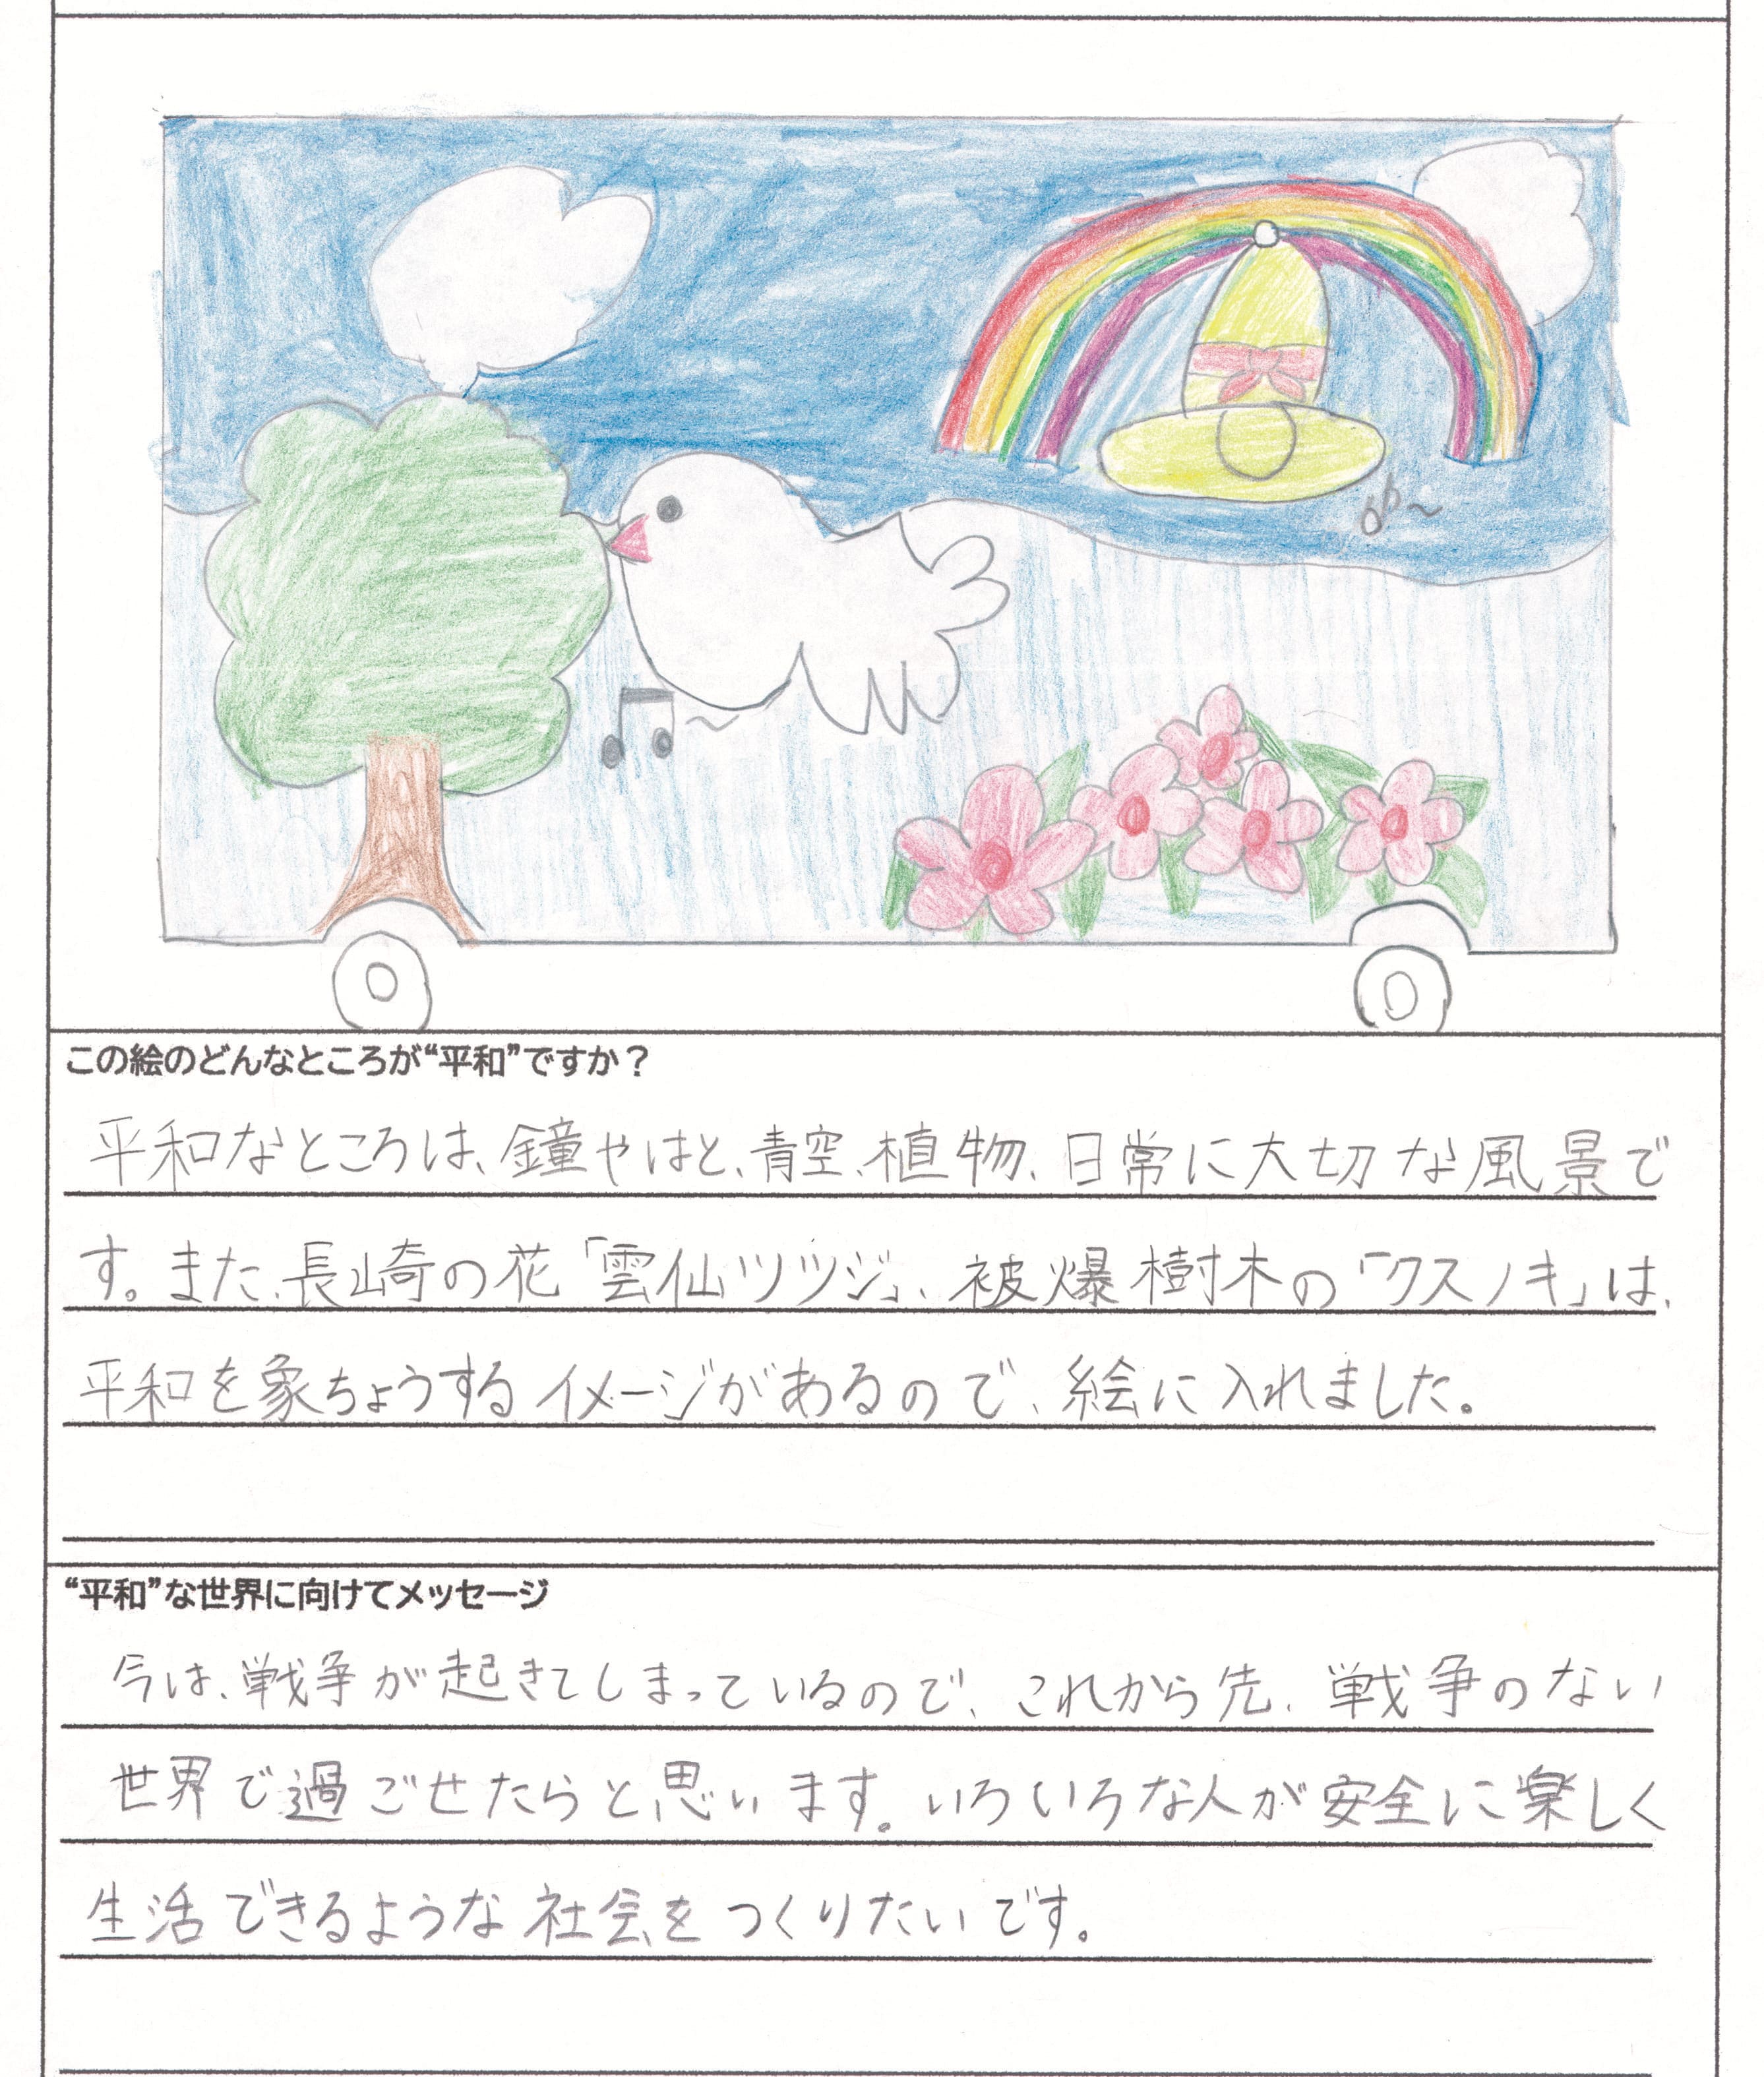 この絵のどんなところが“平和”ですか？
平和なところは、鐘やはと、青空、植物、日常に大切な風景で
す。また、長崎の花「雲仙ツツジ」、被爆樹木の「クスノキ」は、
平和を象ちょうするイメージがあるので、絵に入れました。
“平和”な世界に向けてメッセージ
今は、戦争が起きてしまっているので、これから先、戦争のない
世界で過ごせたらと思います。いろいろな人が安全に楽しく
生活できるような社会をつくりたいです。